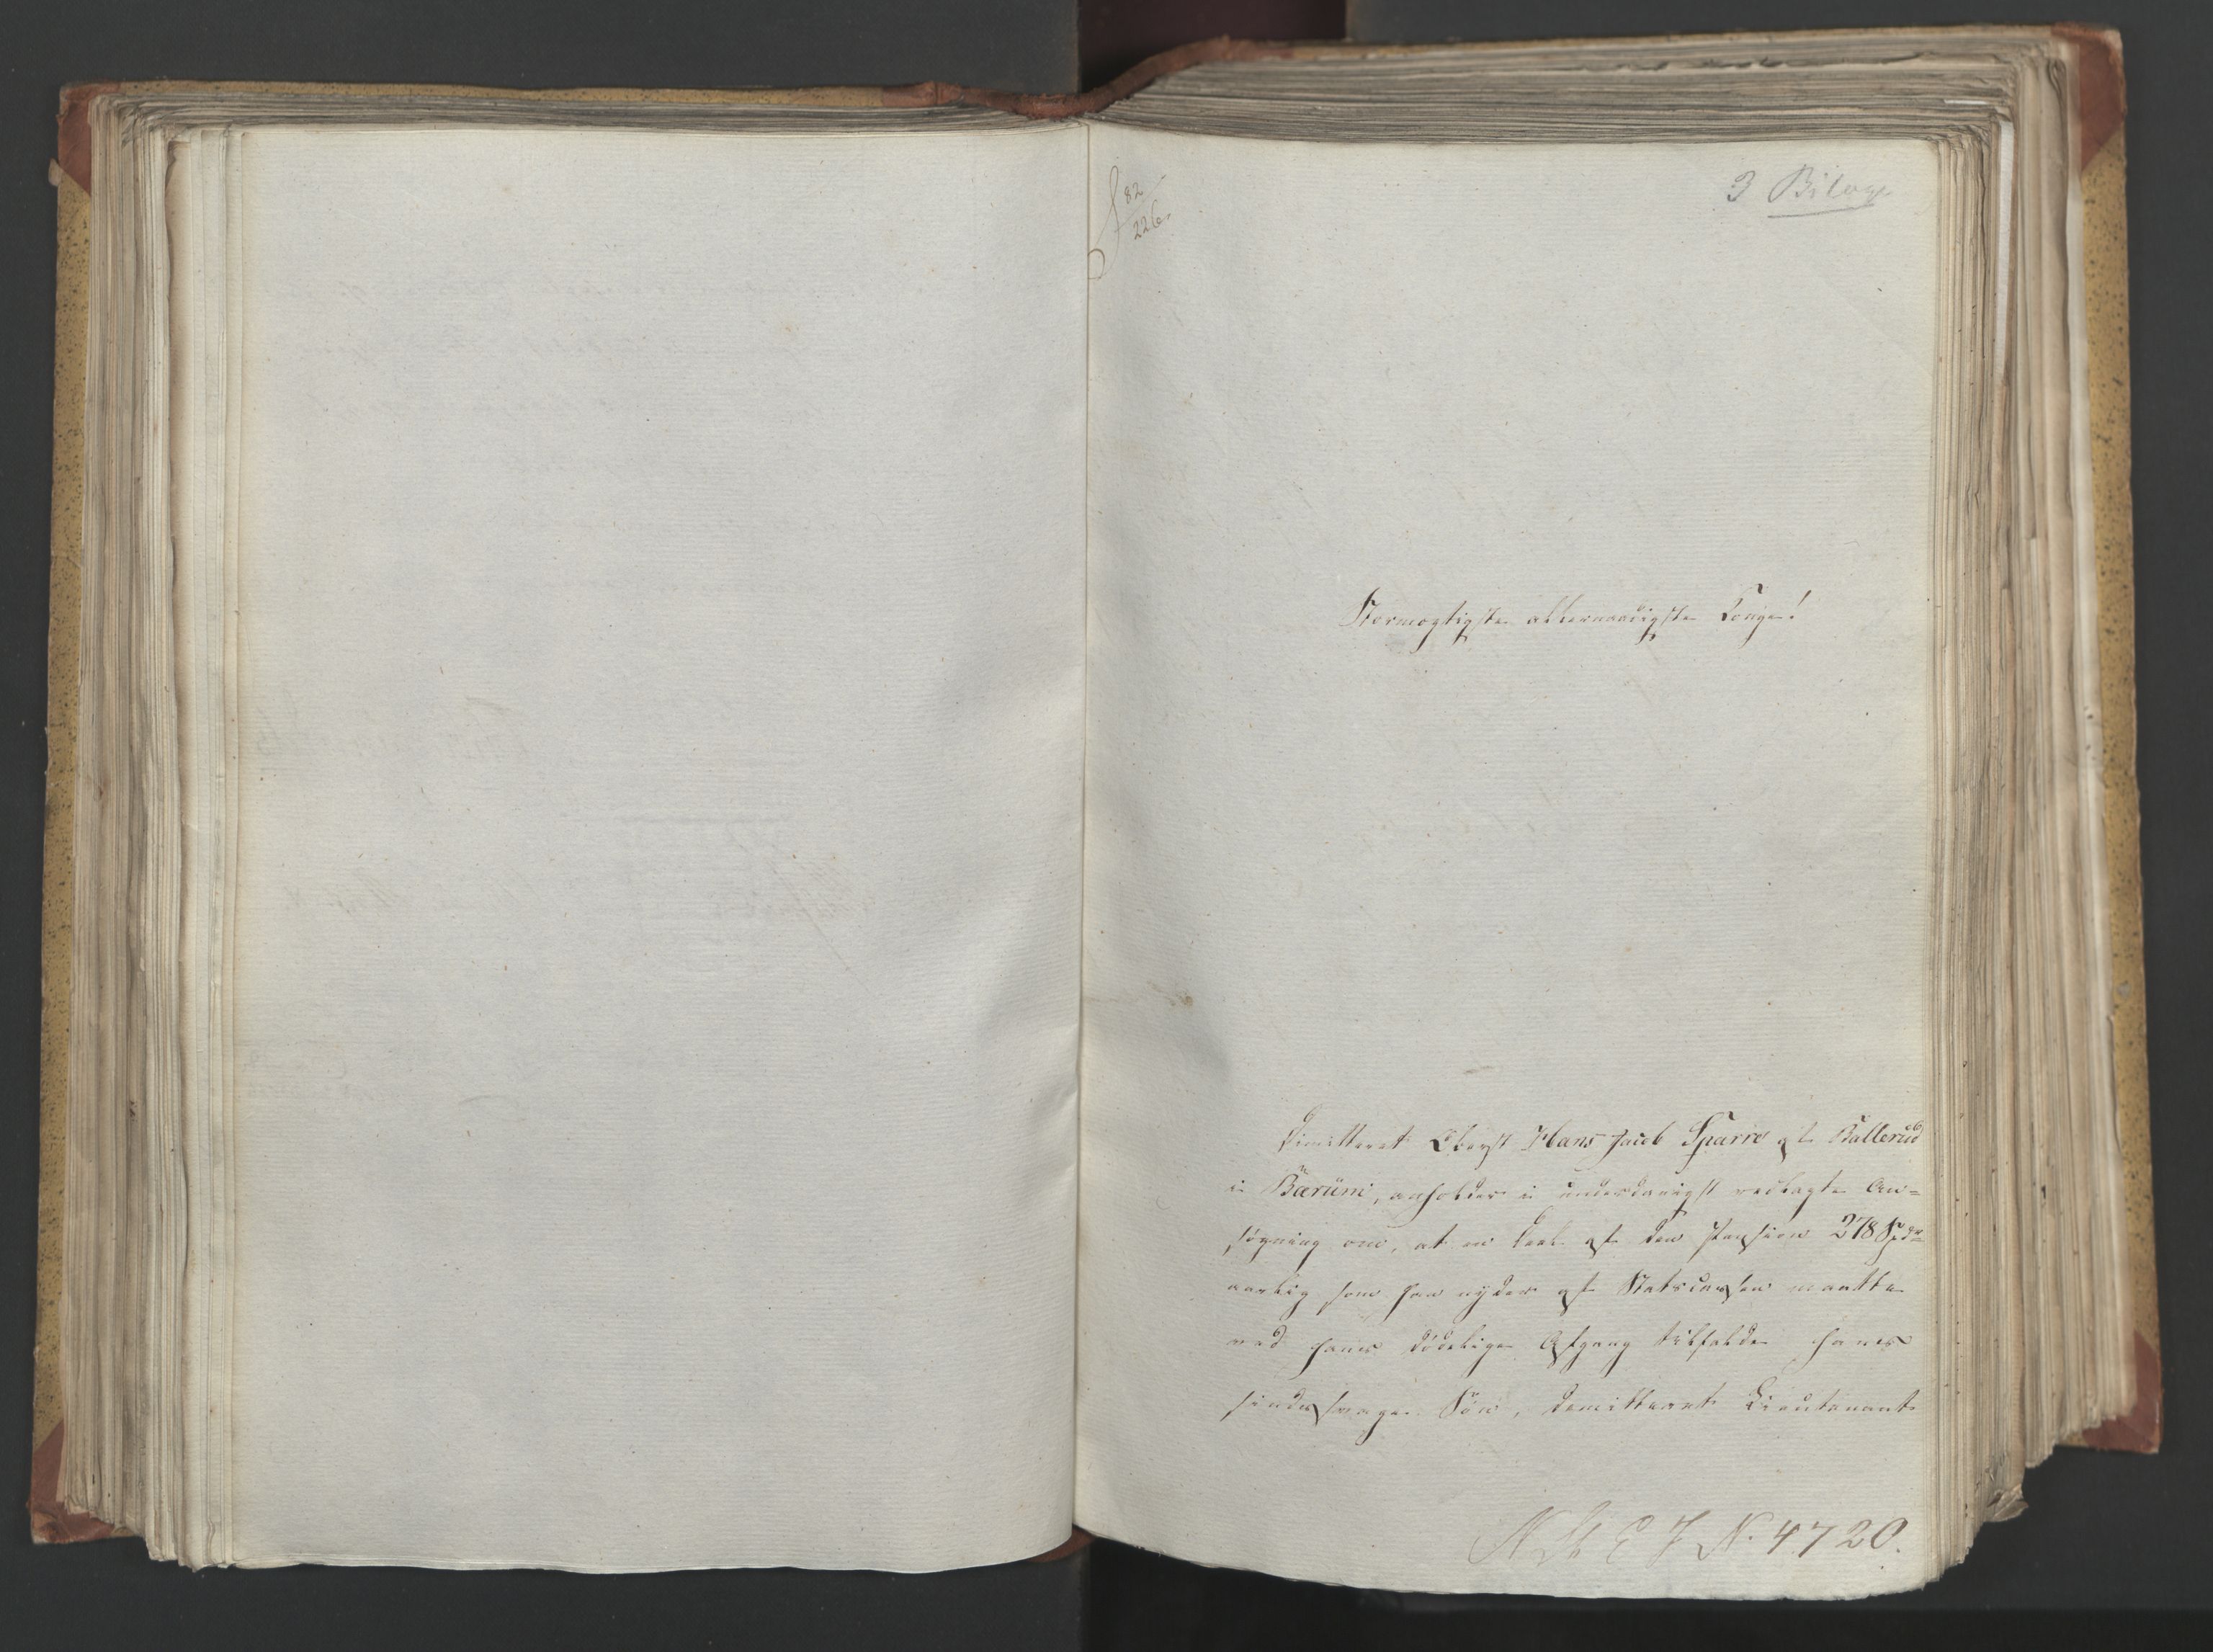 82
226
3 Bilage
Stormægtigste allernaadigste Konge!
Dimitteret Oberst Hans Jacob Sparre af Ballerud
i Bærum, anholder i underdanigst vedlagte An=
søgning om, at en Deel af den Pension 278 Spdr
aarlig som han nyder af Statscassen maatte
ved hans dødelige Afgang tilfalde hans
sindssvage Søn, demitteret Lieutenant
N St E J N. 4720.